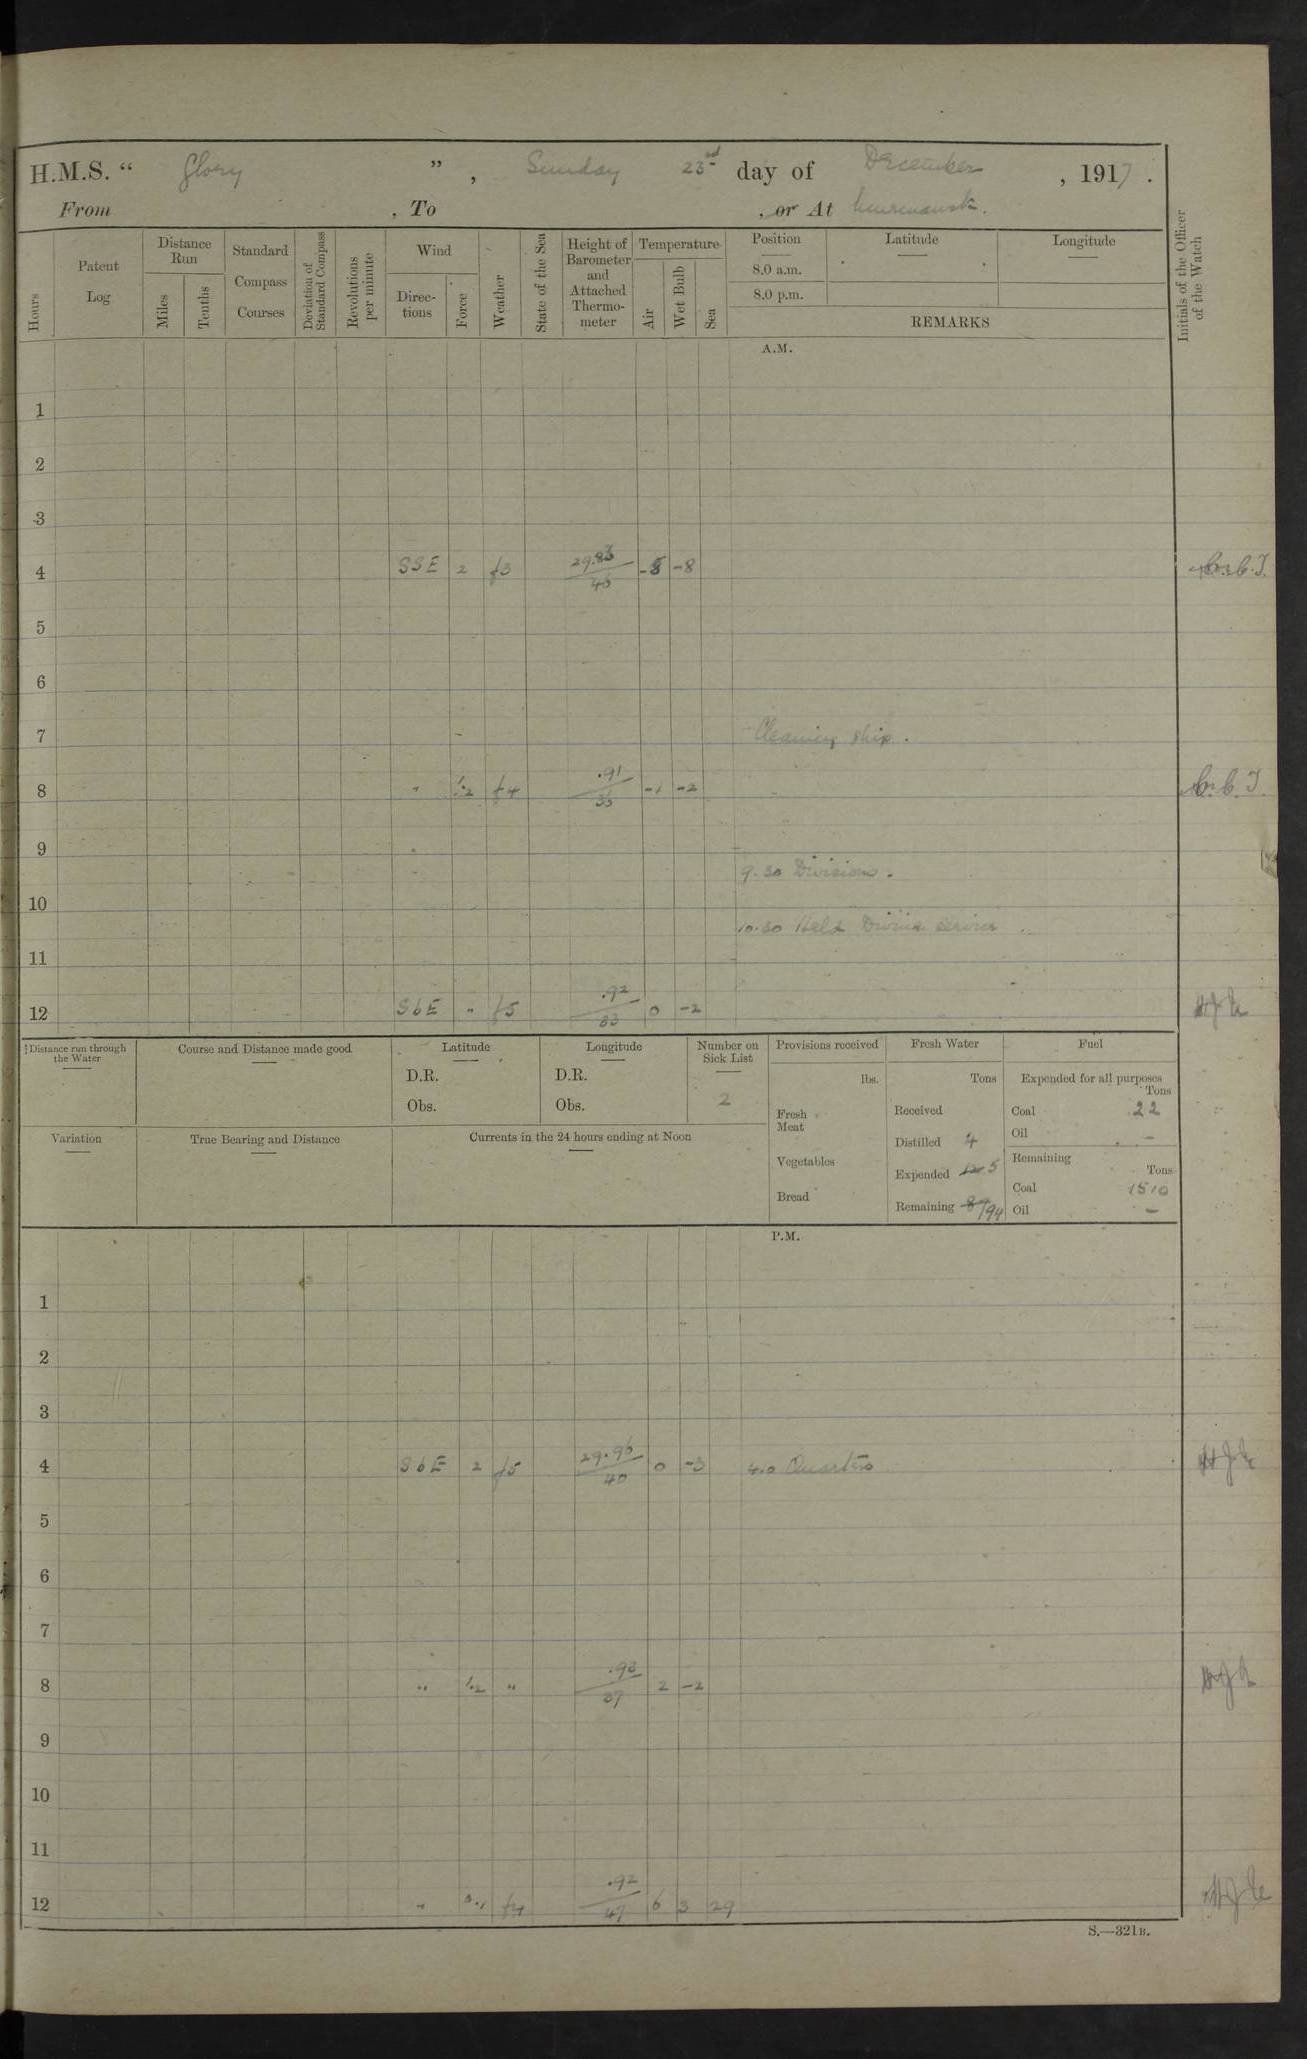 H.M.S. " Glory ", Sunday 23rd day of December, 1917.
From , To , or At Murmansk.
Hours
Patent Log
Distance Run
Miles
Tenths
Standard Compass Courses
Deviation of Standard Compass
Revolutions per minute
Wind
Directions
Force
Weather
State of the Sea
Height of Barometer and Attached Thermometer
Temperature
Air
Wet Bulb
Sea
Position
Latitude
Longitude
8.0 a.m.
8.0 p.m.
REMARKS
Initials of the Officer of the Watch
A.M.
1
2
3
4 SSE 2 f3 29.83 -8
5
6
7 Cleaning ship.
8 " 1.2 f4 .91 -1 -2
9
9.30 Divisions.
10
10.30 Held Divine Service
11
12 SbE " f5 .92 0 -2
Distance run through the Water
Course and Distance made good
Latitude
D.R.
Obs.
Longitude
D.R.
Obs.
Number on Sick List
2
Provisions received
lbs.
Fresh Meat
Vegetables
Bread
Fresh Water
Tons
Received
Distilled 4
Expended 5
Remaining 94
Fuel
Expended for all purposes
Tons
Coal 22
Oil –
Remaining
Tons
Coal 1510
Oil –
Variation
True Bearing and Distance
Currents in the 24 hours ending at Noon
P.M.
1
2
3
4 SbE 2 f5 29.96 40 0 -3 4.0 Quarters
5
6
7
8 " 1.2 " .93 37 2 -2
9
10
11
12 " f4 .92 47 6 3 29
S.—321B.